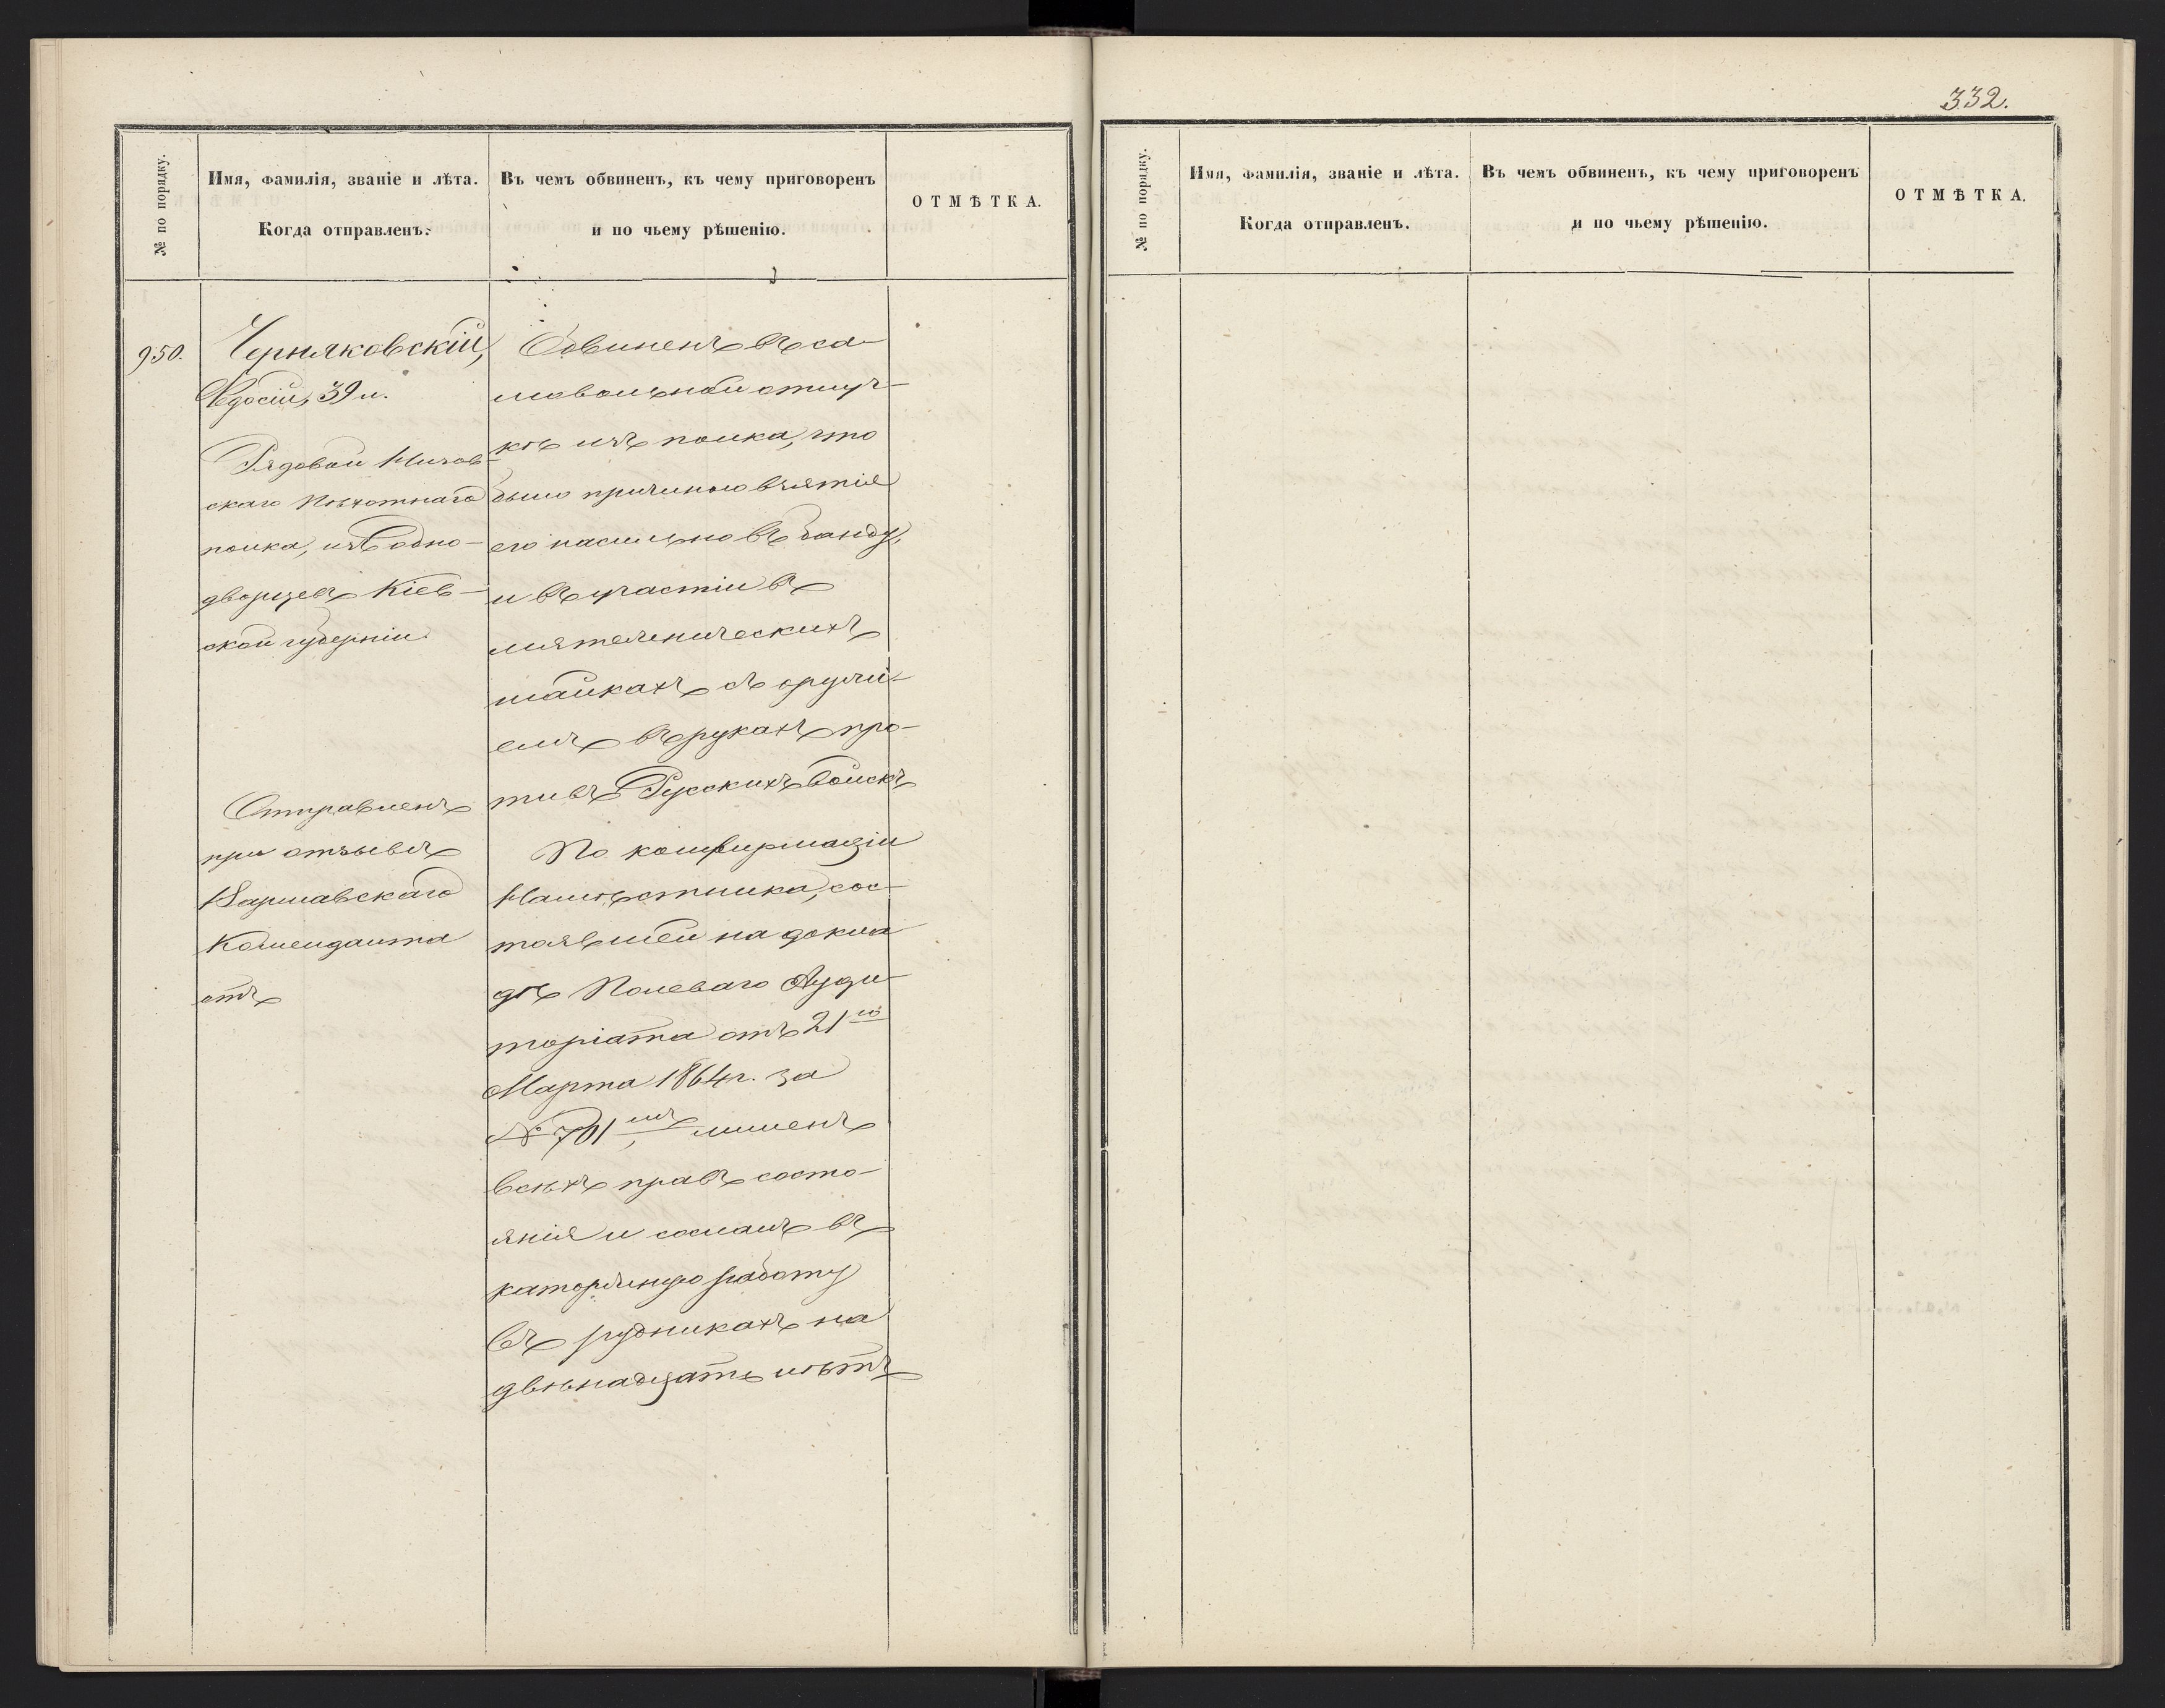 332.
№ по порядку.
Имя, фамилія, званіе и лѣта.
Когда отправленъ.
Въ чемъ обвиненъ, къ чему приговоренъ
и по чьему рѣшенію.
ОТМѢТКА.
950.
Черняковскій,
Ѳедосій, 39 л.
Рядовой Низов-
скаго Пѣхотнаго
полка, изъ одно-
дворцевъ Кіев-
ской губерніи.
Отправленъ
при отзывѣ
Варшавскаго
Коменданта
отъ
Обвиненъ въ са-
мовольной отлуч-
кѣ изъ полка, что
было причиною взятія
его насильно въ банду,
и въ участіи въ
мятежническихъ
шайкахъ съ оружі-
емъ въ рукахъ про-
тивъ Русскихъ войскъ
По конфирмаціи
Намѣстника, сос-
тоявшей на докла
дѣ Полеваго Ауди-
торіата отъ 21го
Марта 1864 г. за
№ 701мъ, лишенъ
всѣхъ правъ состо-
янія и сосланъ въ
каторжную работу
въ рудникахъ на
двѣнадцать лѣтъ
№ по порядку.
Имя, фамилія, званіе и лѣта.
Когда отправленъ.
Въ чемъ обвиненъ, къ чему приговоренъ
и по чьему рѣшенію.
ОТМѢТКА.